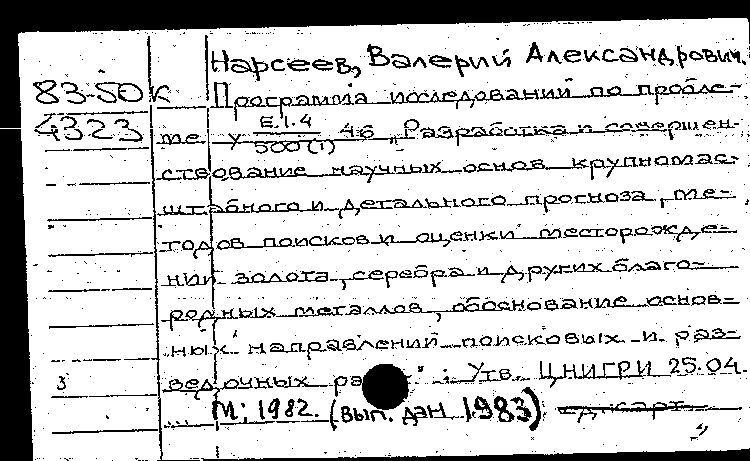 Нарсеев, Валерий Александрович.
83-50к Программа исследований по пробле-
4323 ме У Е.1.4/500(1) 46 „Разработка и совершен-
ствование научных основ крупномас-
штабного и детального прогноза, ме-
тодов поисков и оценки месторожде-
ний золота, серебра и других благо-
родных металлов, обоснование основ-
ных направлений поисковых и раз-
3 ведочных ра ": Утв. ЦНИГРИ 25.04.
М; 1982. (Вып. дан 1983)